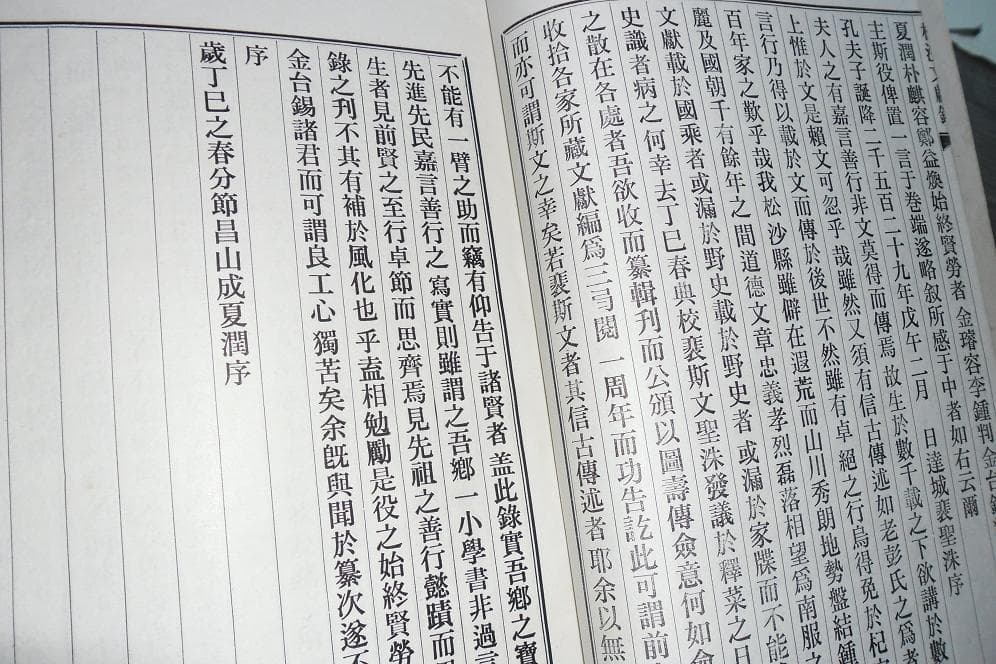 夏潤朴麒容鄭益煥始終賢勞者 金瑢容李鍾判金台錫
主斯役俾置一言于卷端遂略叙所感于中者如右云爾
孔夫子誕降二千五百二十九年戊午二月 日達城裴聖洙序
夫人之有嘉言善行非文莫得而傳焉故生於數千載之下欲講於數
上惟於文是賴文可忽乎哉雖然又須有信古傳述如老彭氏之爲
言行乃得以載於文而傳於後世不然雖有卓絕之行烏得免於杞
百年家之歎乎哉我松沙縣雖僻在遐荒而山川秀朗地勢盤結鍾
麗及國朝千有餘年之間道德文章忠義孝烈磊落相望爲南服之
文獻載於國乘者或漏於野史載於野史者或漏於家牒而不能
史識者病之何幸去丁巳春典校裴斯文聖洙發議於釋菜之日
之散在各處者吾欲收而纂輯刊而公頒以圖壽傳僉意何如僉
收拾各家所藏文獻編爲三弓閱一周年而功告訖此可謂前
而亦可謂斯文之幸矣若裴斯文者其信古傳述者耶余以無
不能有一臂之助而竊有仰告于諸賢者盖此錄實吾鄉之寶
先進先民嘉言善行之寫實則雖謂之吾鄉一小學書非過言
生者見前賢之至行卓節而思齊焉見先祖之善行懿蹟而
錄之刋不其有補於風化也乎盍相勉勵是役之始終賢勞
金台錫諸君而可謂良工心獨苦矣余旣與聞於纂次遂不
序
歲丁巳之春分節昌山成夏潤序